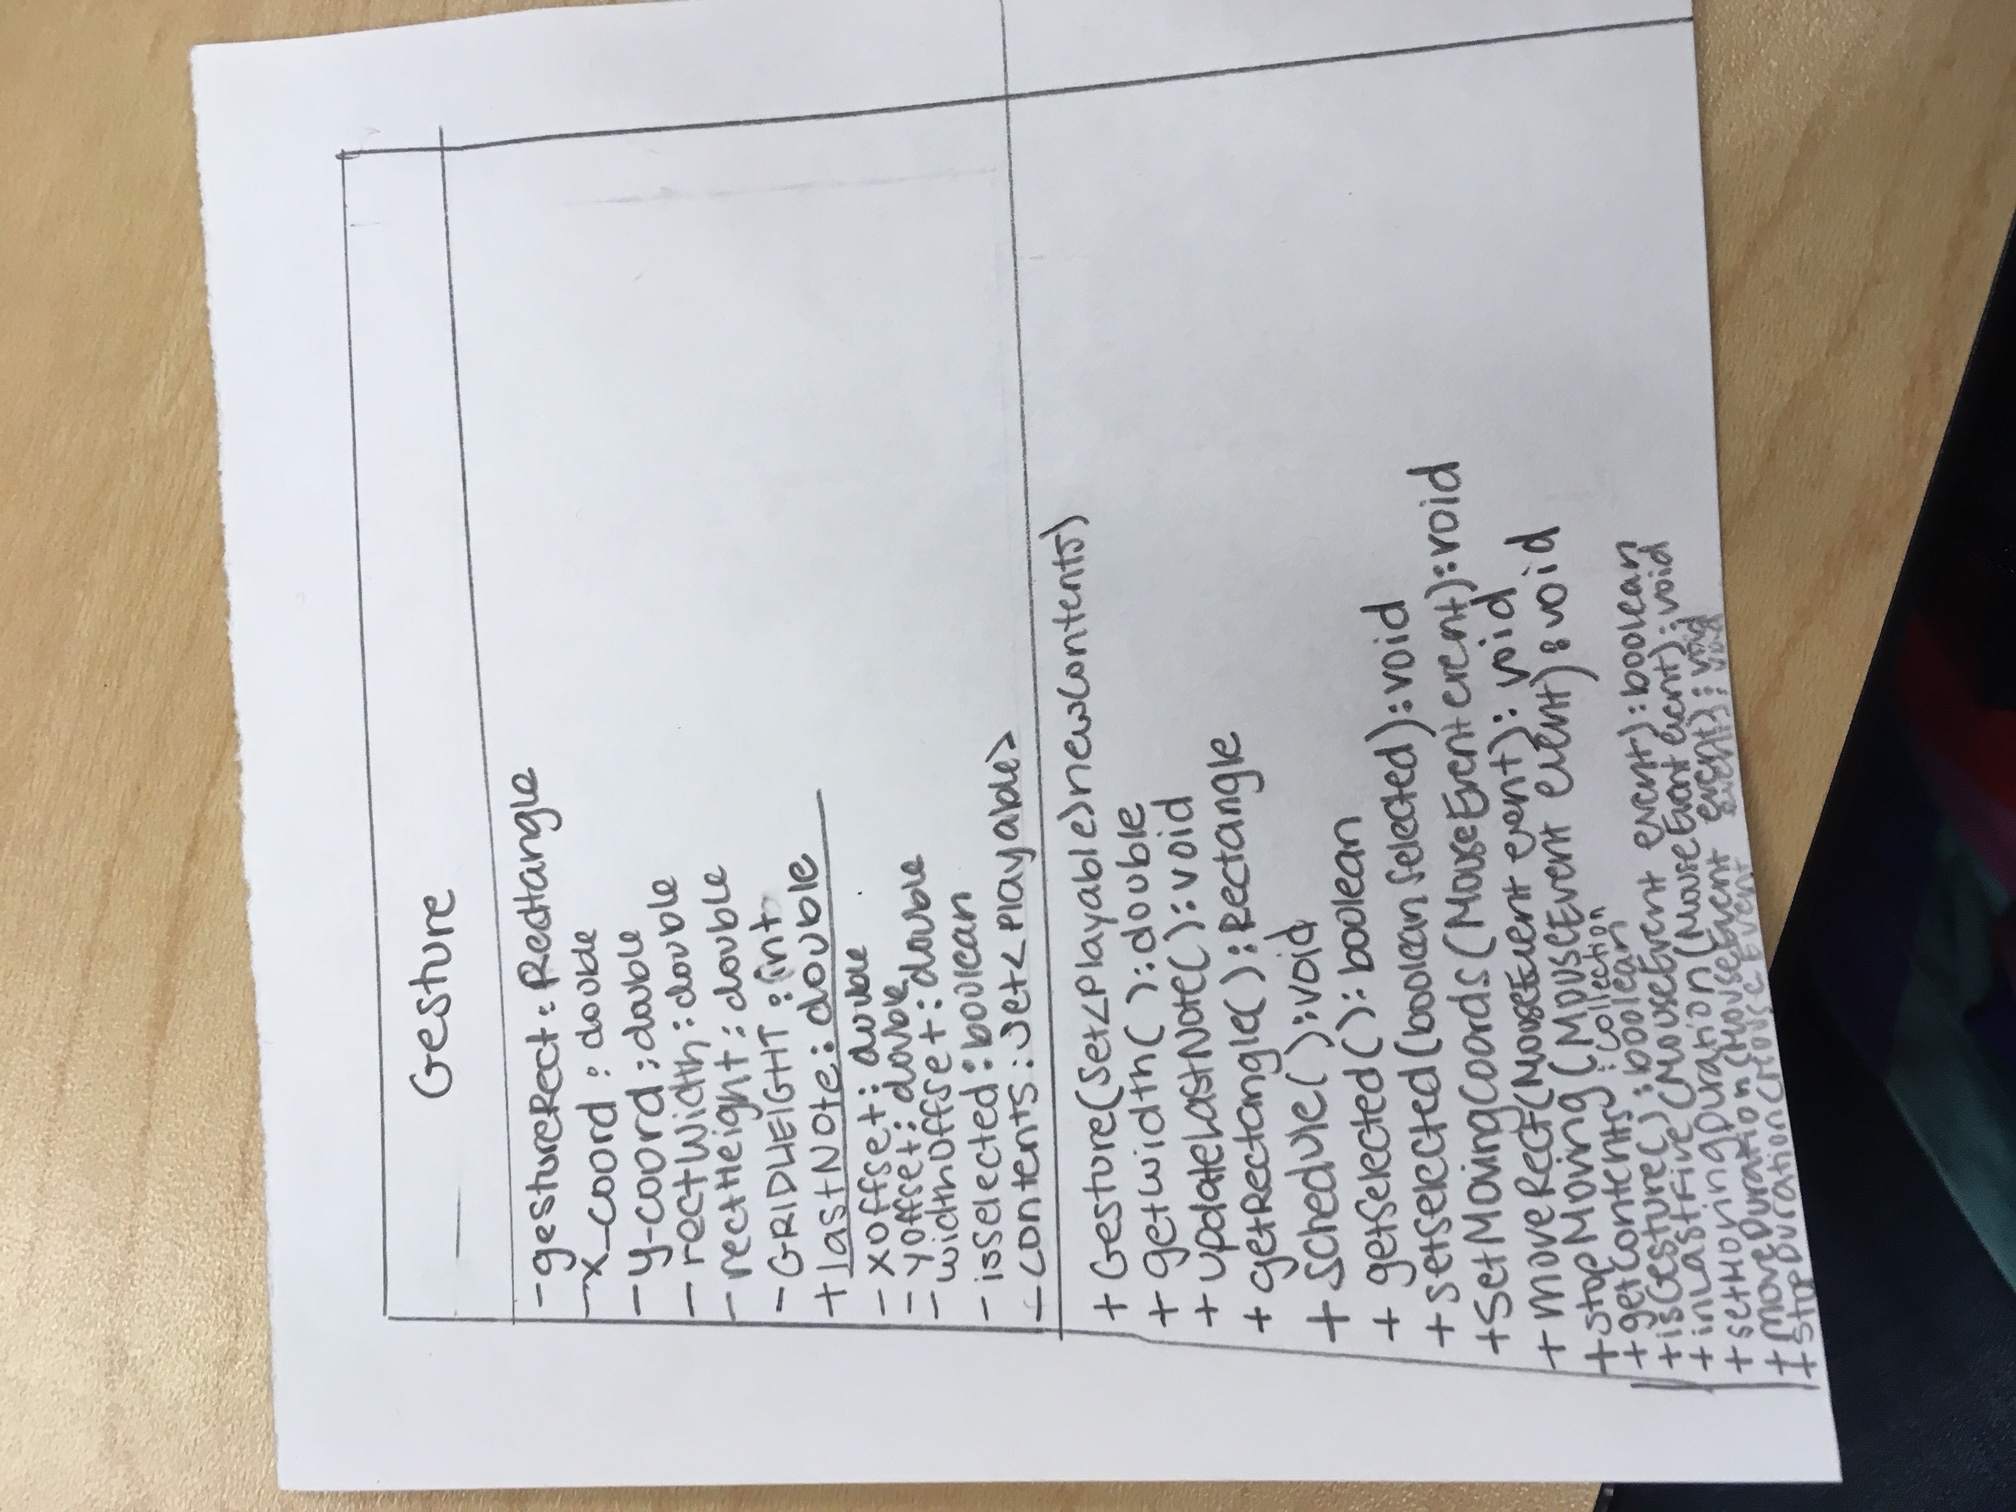 Gesture
- gestureRect : Rectangle
- x_coord : double
- y-coord : double
- rectWidth : double
- rectHeight : double
- GRIDHEIGHT : int
+ lastNote : double
- xOffset : double
- yOffset : double
- widthOffset : double
- isSelected : boolean
- contents : Set<Playable>
+ Gesture(Set<Playable> newContents)
+ getWidth( ) : double
+ updateLastNote( ) : void
+ getRectangle( ) : Rectangle
+ schedule( ) : void
+ getSelected( ) : boolean
+ setSelected (boolean selected) : void
+ setMovingCoords (MouseEvent event) : void
+ moveRect(MouseEvent event) : void
+ stopMoving (MouseEvent event) : void
+ getContents : collection
+ isGesture( ) : boolean
+ inLastFive (MouseEvent event) : boolean
+ setMovingDuration (MouseEvent event) : void
+ moveDuration (MouseEvent event) : void
+ stopDuration (Mouse Event event) : void